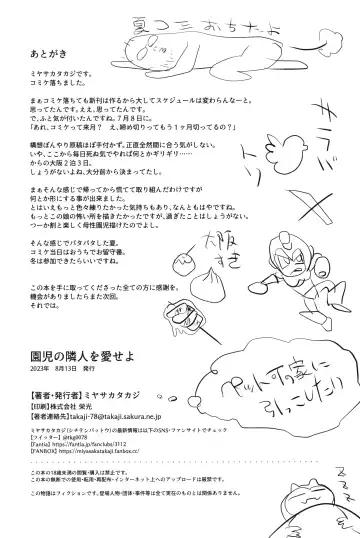 夏コミおちたよ
あとがき
ミヤサカタカジです。
コミケ落ちました。
まぁコミケ落ちても新刊は作るから大してスケジュールは変わらんなーと。
思ってたんです。ええ、思ってたんです。
で、ふと気が付いたんですね。7月8日に。
「あれ、コミケって来月？　え、締め切りってもう1ヶ月切ってるの？」
構想ばんやり原稿ほぼ手付かず。正直全然間に合う気がしない。
いや、ここから毎日死ぬ気でやれば何とかギリギリ……
からの大阪2泊3日。
しょうがないよね、大分前から決まってたし。
まぁそんな感じで帰ってから慌てて取り組んだわけですが
何とか形にする事が出来ました。
とはいえもっと色々練りたかった気持ちもあり、なんともはやですね。
もっとこの娘の怖い所を描きたかったですが、過ぎたことはしょうがない。
つーか割と楽しく母性園児描けたのでよし。
そんな感じでバタバタした夏。
コミケ当日はおうちでお留守番。
冬は参加できたらいいですね。
この本を手に取ってくださった全ての方に感謝を。
機会がありましたらまた次回。
それでは。
大阪
すき
園児の隣人を愛せよ
2023年　8月13日　発行
【著者・発行者】ミヤサカタカジ
【印刷】株式会社 栄光
【著者連絡先】takaji-78@takaji.sakura.ne.jp
ミヤサカタカジ(シチテンバットウ)の最新情報は以下のSNS・ファンサイトでチェック
【ツイッター】@tkg0078
【Fantia】https://fantia.jp/fanclubs/3112
【FANBOX】https://miyasakatakaji.fanbox.cc/
この本の18歳未満の閲覧・購入は禁止です。
この本の無断での使用・転用・再配布・インターネット上へのアップロードは厳禁です。
この物語はフィクションです。登場人物・団体・事件等は全て実在のものとは関係ありません。
ペット可の家に
引っこしたい